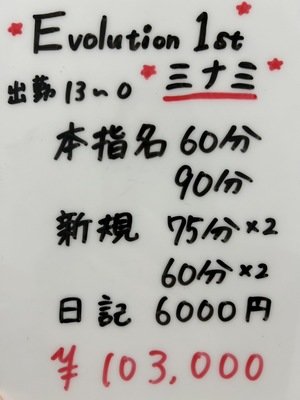 Evolution 1st
出勤 13〜0 三ナ三
本指名 60分
90分
新規 75分×2
60分×2
日記 6000円
¥103,000